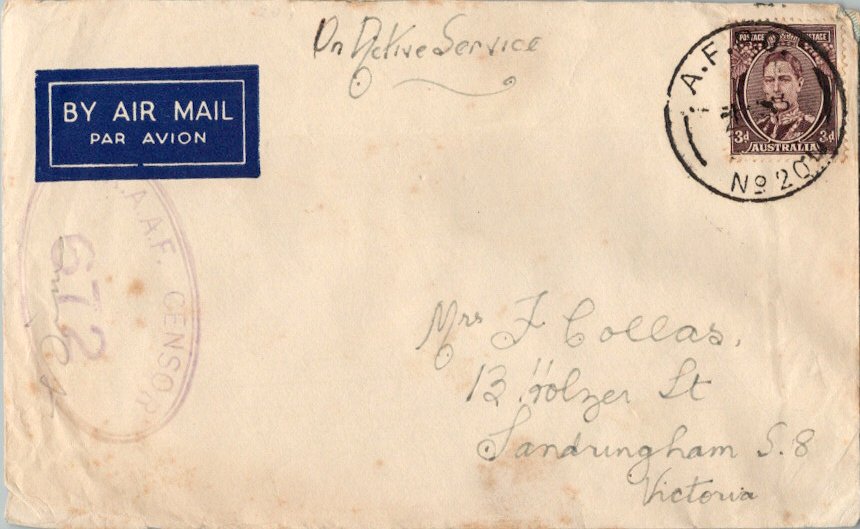 On Active Service
BY AIR MAIL
PAR AVION
POSTAGE POSTAGE
3d 3d
AUSTRALIA
A.F.
No 20
R.A.A.F. CENSOR
672
Mrs F Collas,
13 Holzer St
Sandringham S.8
Victoria